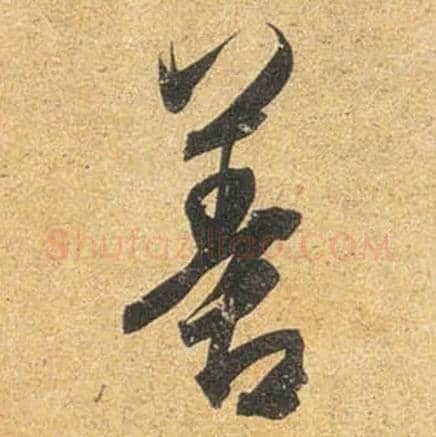 善
Shufaziliao.COM